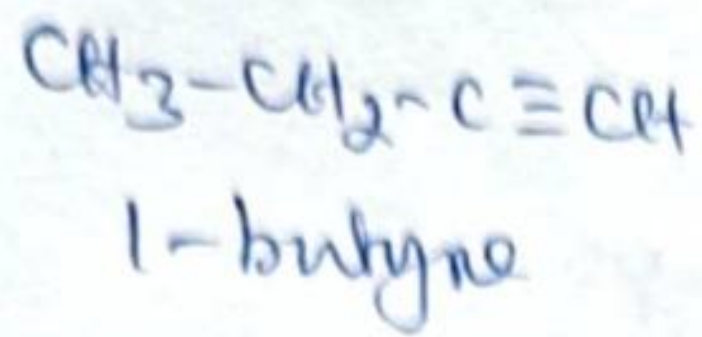 CH3-CH2-C≡CH
1-butyne